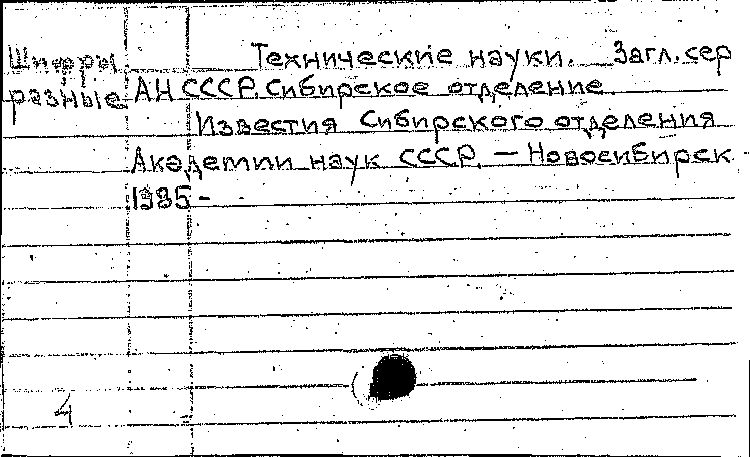 Шифры Технические науки. Загл. сер
разные АН СССР. Сибирское отделение.
Известия Сибирского отделения
Академии наук СССР. — Новосибирск
1985 -
4